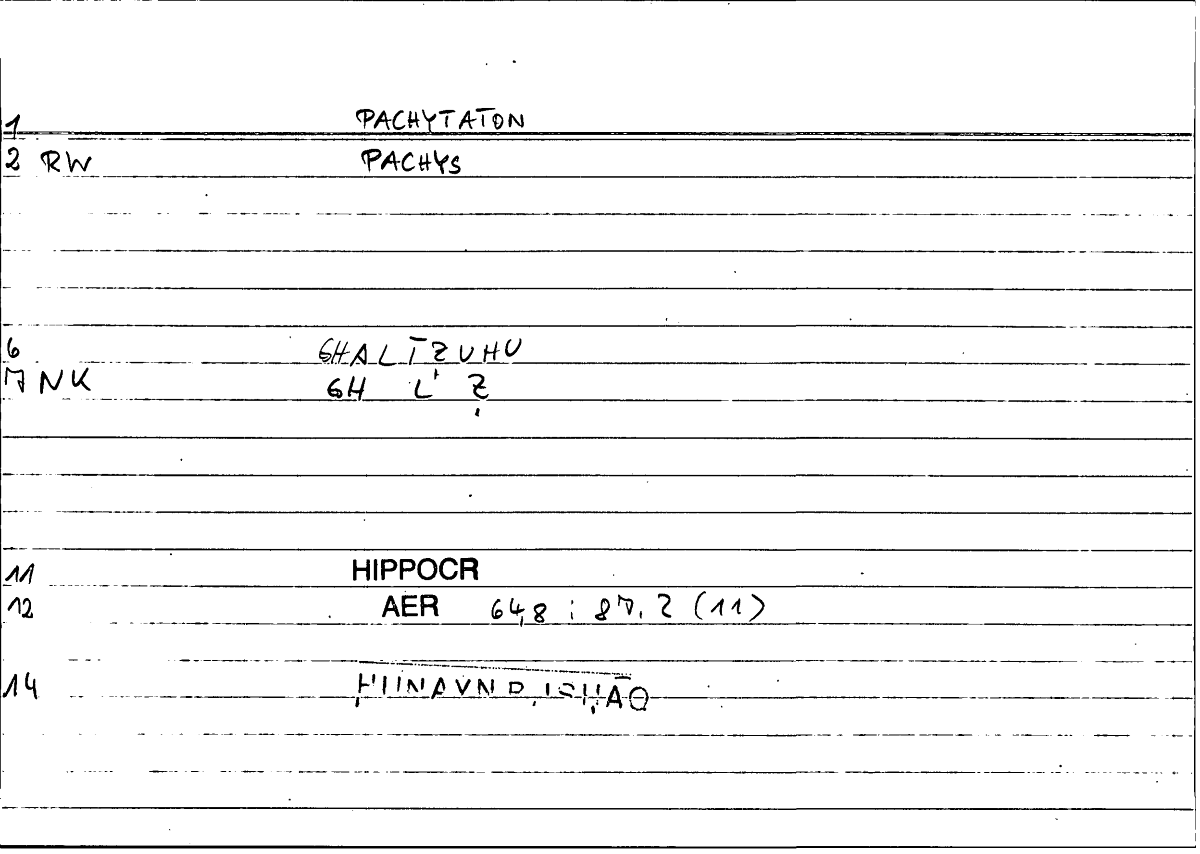 1 PACHYTATON
2 RW PACHYS
6 GHALĪZUHU
7 NK GH L' Ẓ
11 HIPPOCR
12 AER 64,8 : 87,2 (11)
14